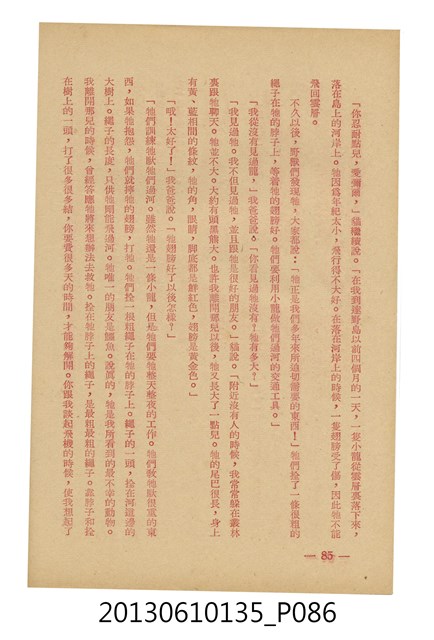 「你忍耐點兒，愛爾爾，」貓繼續說。「在我到達野島以前四個月的一天，一隻小龍從雲層裏落下來，
落在島上的河岸上。牠因爲年紀太小，飛行得不大好。在落在河岸上的時候，一隻翅膀受了傷，因此牠不能
飛回雲層。
不久以後，野獸們發現牠，大家都說：「牠正是我們多年來所迫切需要的東西！」牠們拴了一條很粗的
繩子在牠的脖子上，等着牠的翅膀好。牠們要利用小龍做牠們過河的交通工具。」
「我從沒有見過龍，」我爸爸說。「你看見過牠沒有？牠有多大？」
「我見過牠。我不但見過牠，並且跟牠是很好的朋友。」貓說。「附近沒有人的時候，我常常躲在叢林
裏跟牠聊天。牠並不大。大約有頭黑熊大。也許我離開那兒以後，牠又長大了一點兒。牠的尾巴很長，身上
有黃、藍相間的條紋，牠的角，眼睛，脚底都是鮮紅色，翅膀是黃金色。」
「哦！太好了！」我爸爸說。「牠翅膀好了以後怎樣？」
「牠們訓練牠馱牠們過河。雖然牠還是一條小龍，但是牠們要牠整天整夜的工作。牠們教牠馱很重的東
西，如果牠抱怨，牠們就擰牠的翅膀，打牠。牠們拴一根粗繩子在牠的脖子上。繩子的一頭，拴在河邊的
大樹上。繩子的長度，只供牠剛能飛過河。牠唯一的朋友是鱷魚。說真的，牠是我所看到的最不幸的動物。
我離開那兒的時候，曾經答應牠將來想辦法去救牠。拴在牠脖子上的繩子，是最粗最粗的繩子。靠脖子和拴
在樹上的一頭，打了很多很多結，你要費很多天的時間，才能夠解開。你跟我談起飛機的時候，使我想起了
— 85 —
20130610135_P086